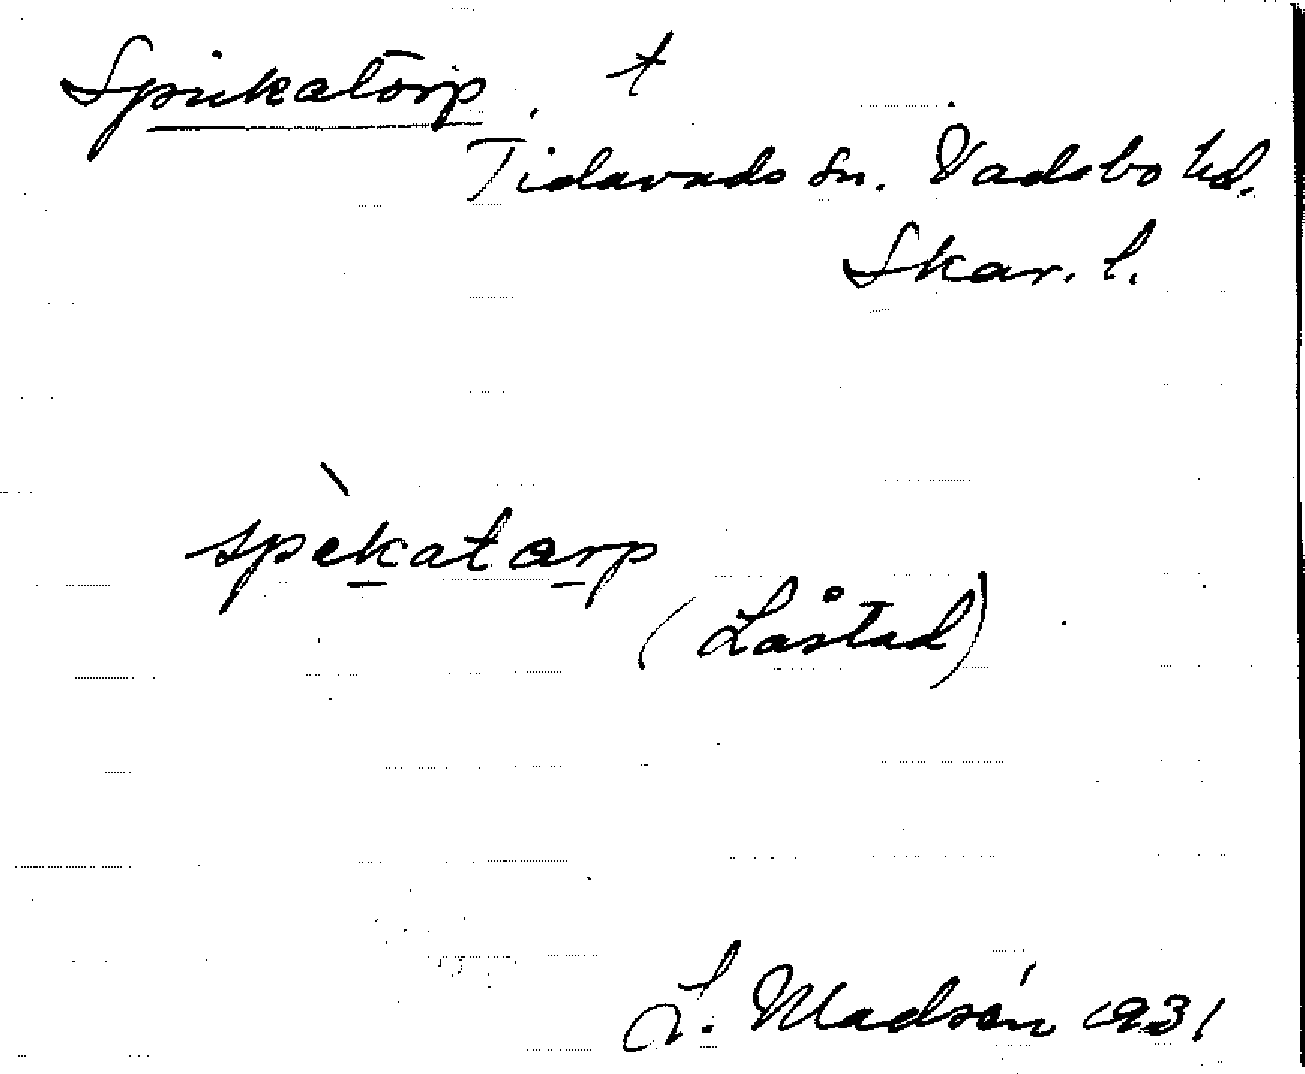 Spikatorp. t
Tidavads sn. Vadsbo hd.
Skar. l.
spèkatarp
(Låstad)
L. Madsén 1931